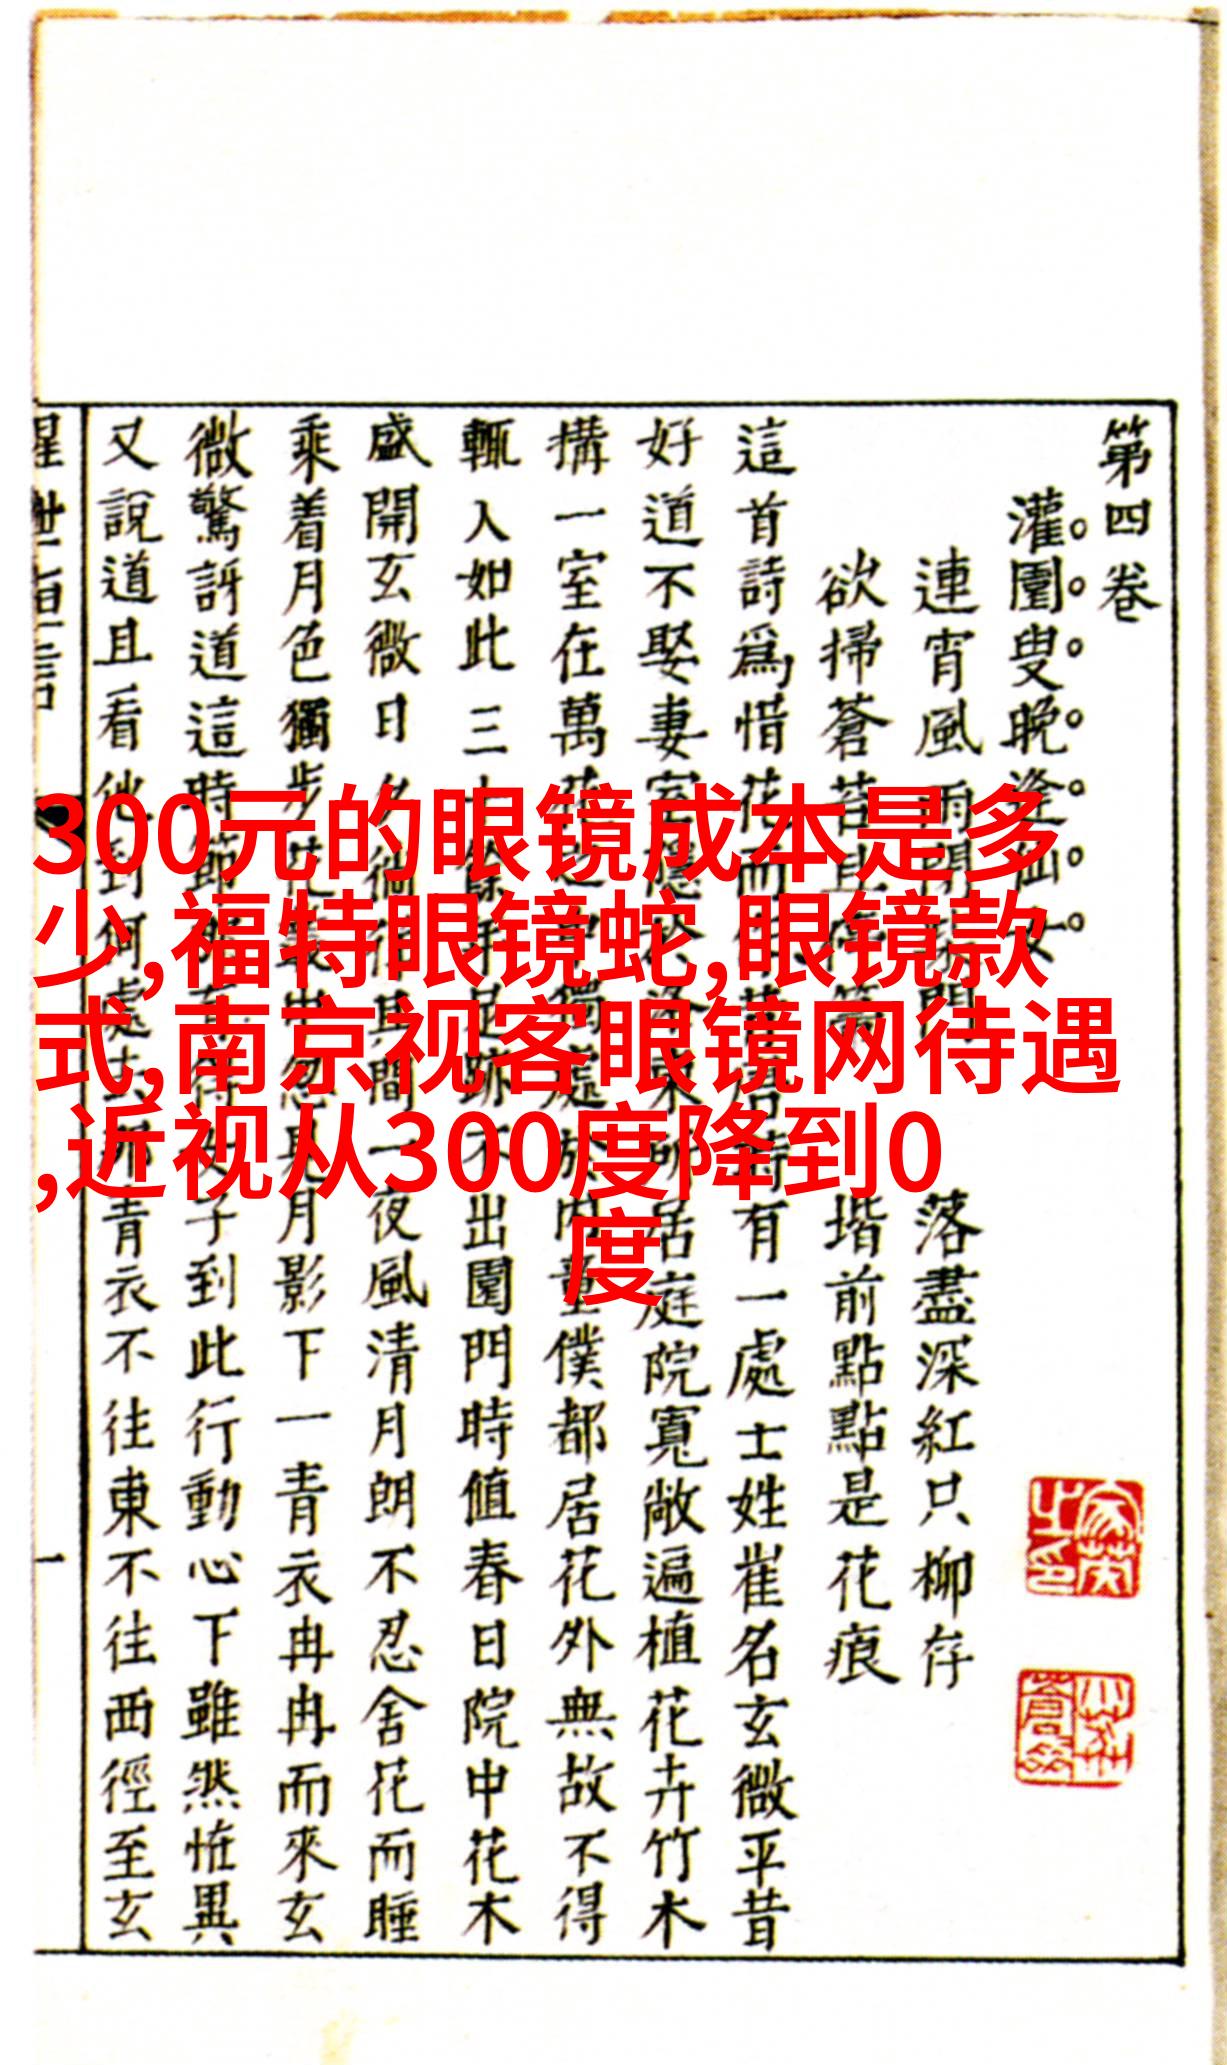 300元的眼镜成本是多
少,福特眼镜蛇,眼镜款
式,南京视客眼镜网待遇
,近视从300度降到0
度
第四卷
灌園叟晚逢仙女
連宵風雨閉柴門 落盡深紅只柳存
欲掃蒼苔且 堦前點點是花痕
這首詩爲惜花而 有一處士姓崔名玄微平昔
好道不娶妻室隱 居庭院寬敞遍植花卉竹木
搆一室在萬花 獨處於内童僕都居花外無故不得
輒入如此三十餘年足跡不出園門時值春日院中花木
盛開玄微日夕徜徉其間一夜風清月朗不忍舍花而睡
乘着月色獨步花叢 忽見月影下一青衣冉冉而來玄
微驚訝道這時節 子到此行動心下雖然恠異
又說道且看他到何處去那青衣不往東不往西徑至玄
一